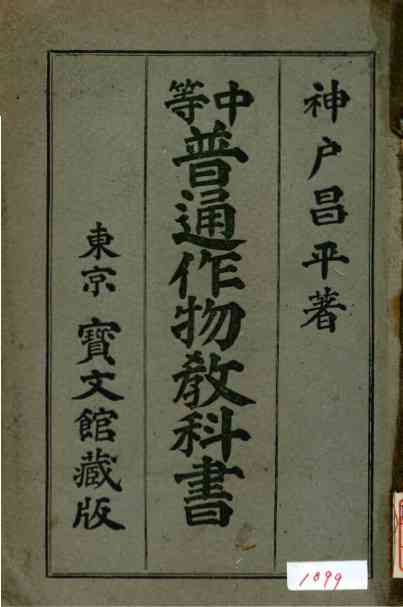 神戸昌平著
中等
普通作物教科書
東京 寳文館藏版
1099